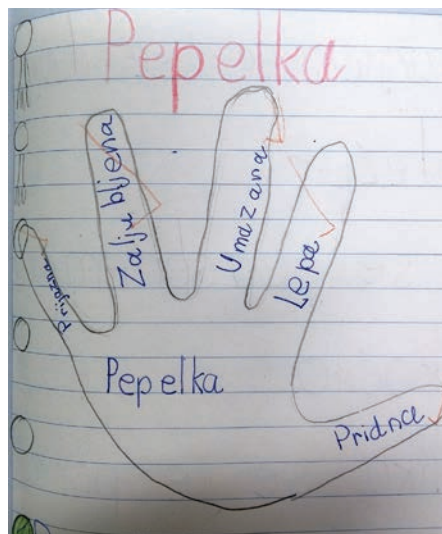 Pepelka
Prijazna
Zaljubljena
Umazana
Lepa
Pridna
Pepelka